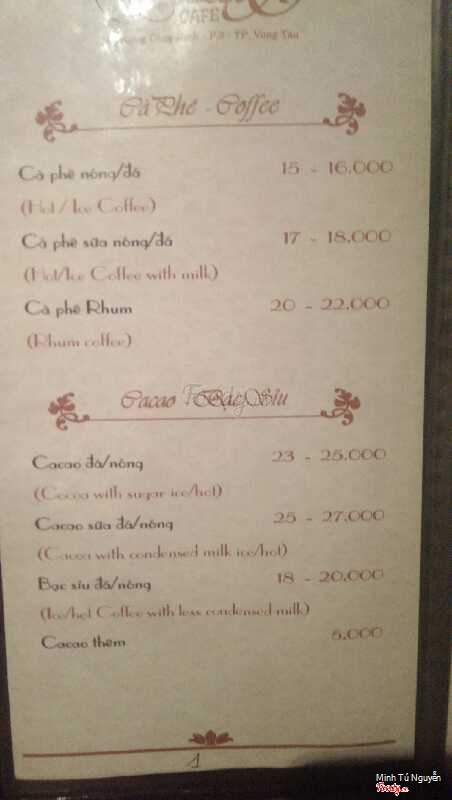 CAFE
P.8 - TP. Vũng Tàu
Cà Phê - Coffee
Cà phê nóng/đá 15 - 16.000
(Hot / Ice Coffee)
Cà phê sữa nóng/đá 17 - 18.000
(Hot/Ice Coffee with milk)
Cà phê Rhum 20 - 22.000
(Rhum coffee)
Cacao Bạc Sỉu
Cacao đá/nóng 23 - 25.000
(Cocoa with sugar ice/hot)
Cacao sữa đá/nóng 25 - 27.000
(Cacoa with condensed milk ice/hot)
Bạc sỉu đá/nóng 18 - 20.000
(Ice/hot Coffee with less condensed milk)
Cacao thêm 5.000
1
Minh Tú Nguyễn
Foody.vn